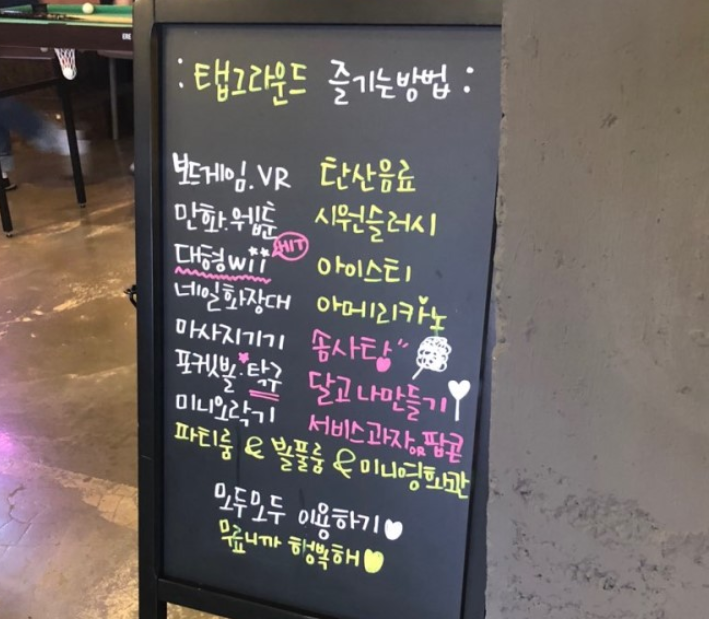 : 탭그라운드 즐기는방법 :
보드게임.VR
만화.웹툰
대형wii HIT
네일화장대
마사지기기
포켓볼·탁구
미니오락기
탄산음료
시원슬러시
아이스티
아메리카노
솜사탕
달고나만들기
서비스과자OR팝콘
파티룸 & 볼풀룸 & 미니영화관
모두모두 이용하기
무료니까 행복해